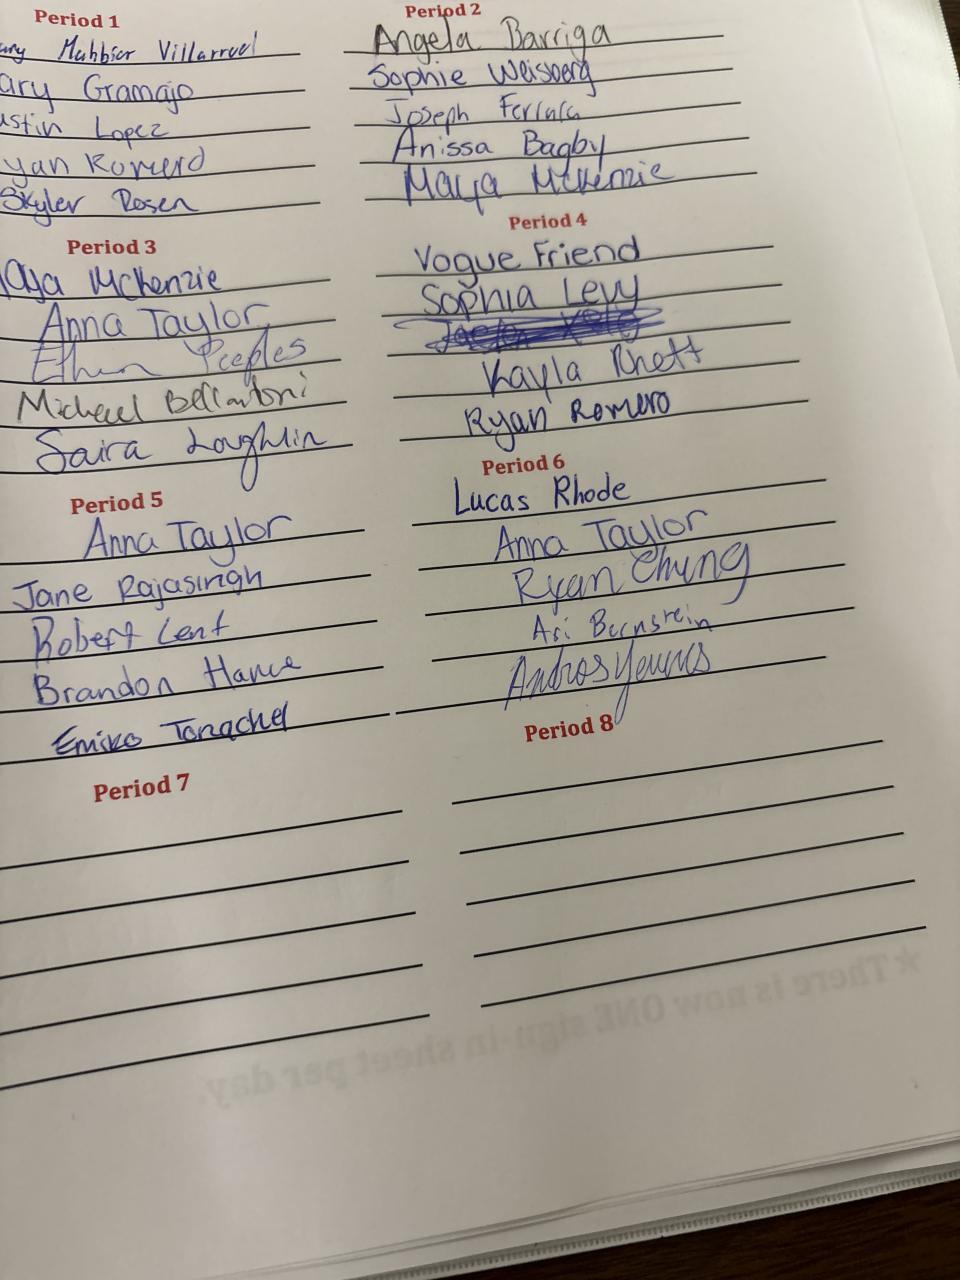 Period 1
Villarruel
Gramajo
Lopez
Skyler Rosen
Period 2
Angela Barriga
Sophie Weisberg
Joseph
Anissa Bagby
Maya McKenzie
Period 3
McKenzie
Anna Taylor
Ethan Peeples
Michael Bellantoni
Saira Loughlin
Period 4
Vogue Friend
Sophia Levy
Kayla Rhett
Ryan Romero
Period 5
Anna Taylor
Jane Rajasingh
Robert Lent
Brandon
Emiko
Period 6
Lucas Rhode
Anna Taylor
Ryan Chung
Ari Bernstein
Andros Younus
Period 7
Period 8
★There is now ONE sign-in sheet per day.